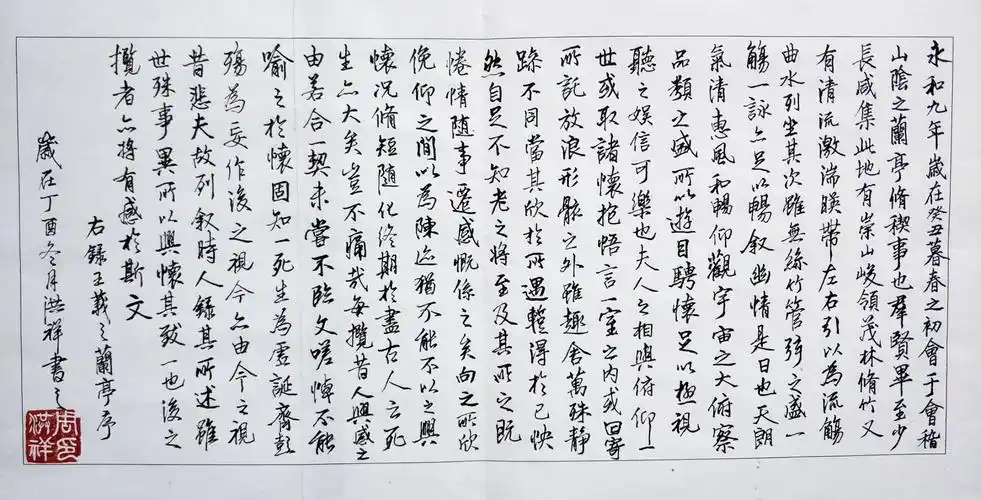 永和九年歲在癸丑暮春之初會于會稽
山陰之蘭亭脩稧事也羣賢畢至少
長咸集此地有崇山峻領茂林脩竹又
有清流激湍暎帶左右引以為流觴
曲水列坐其次雖無絲竹管弦之盛一
觴一詠亦足以暢叙幽情是日也天朗
氣清惠風和暢仰觀宇宙之大俯察
品類之盛所以遊目騁懷足以極視
聽之娛信可樂也夫人之相與俯仰一
世或取諸懷抱悟言一室之內或因寄
所託放浪形骸之外雖趣舍萬殊靜
躁不同當其欣於所遇蹔得於己怏
然自足不知老之將至及其所之既
惓情隨事遷感慨係之矣向之所欣
俛仰之間以為陳迹猶不能不以之興
懷況脩短隨化終期於盡古人云死
生亦大矣豈不痛哉每攬昔人興感之
由若合一契未嘗不臨文嗟悼不能
喻之於懷固知一死生為虛誕齊彭
殤為妄作後之視今亦由今之視
昔悲夫故列叙時人錄其所述雖
世殊事異所以興懷其致一也後之
攬者亦將有感於斯文
右錄王羲之蘭亭序
歲在丁酉冬月洪祥書之
周印
洪祥